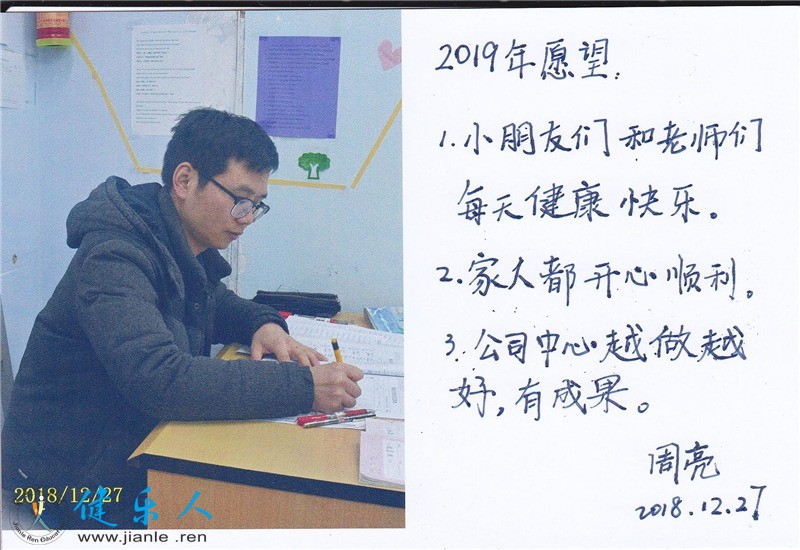 2019年愿望:
1.小朋友们和老师们
每天健康快乐。
2.家人都开心顺利。
3.公司中心越做越
好,有成果。
周亮
2018.12.27
2018/12/27
健乐人
www.jianle .ren